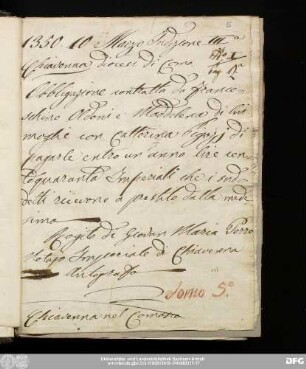 1350 10 Marzo Indizione III
Chiavenna diocesi di Como
Obbligazione contratta da France-
schino Adoni e Maddalena di lui
moglie con Catterina di
pagarle entro un anno lire cen
toquaranta Imperiali che i sud
detti ricevono a prestito dalla mede
sima
Rogito di Giovan Maria
Notajo Imperiale di Chiavenna
Autografo
Tomo 5º
Chiavenna nel Comasco